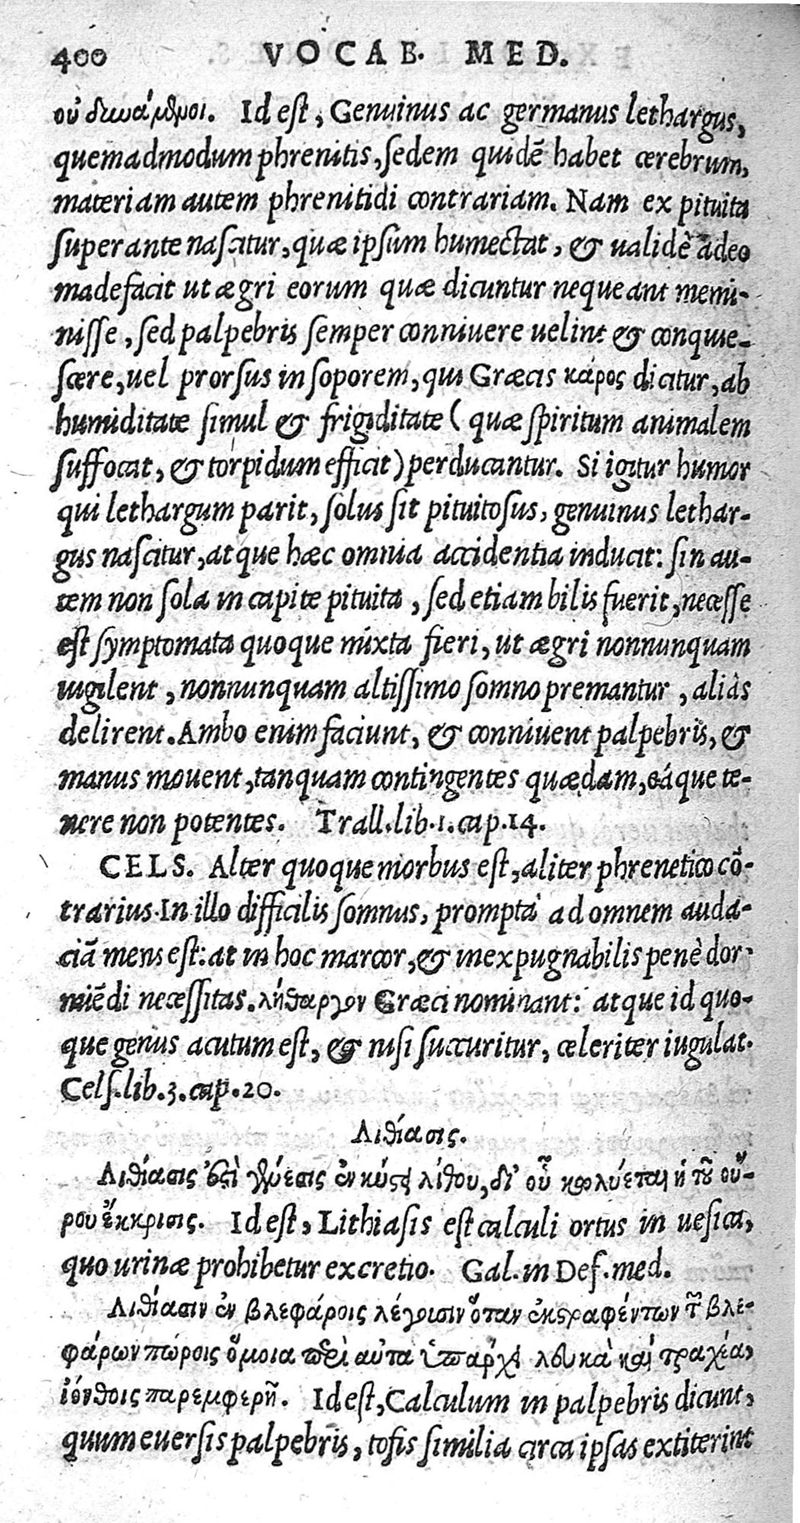 400 VOCAB. MED.
οὐ δυνάμενοι. Id est, Genuinus ac germanus lethargus,
quemadmodum phrenitis, sedem quidē habet cerebrum,
materiam autem phrenitidi contrariam. Nam ex pituita
superante nascitur, quæ ipsum humectat, & ualidè adeo
madefacit ut ægri eorum quæ dicuntur nequeant memi-
nisse, sed palpebris semper conniuere uelint & conquie-
scere, uel prorsus in soporem, qui Græcis κάρος dicitur, ab
humiditate simul & frigiditate (quæ spiritum animalem
suffocat, & torpidum efficit) perducantur. Si igitur humor
qui lethargum parit, solus sit pituitosus, genuinus lethar-
gus nascitur, atque hæc omnia accidentia inducit: sin au-
tem non sola in capite pituita, sed etiam bilis fuerit, necesse
est symptomata quoque mixta fieri, ut ægri nonnunquam
uigilent, nonnunquam altissimo somno premantur, aliàs
delirent. Ambo enim faciunt, & conniuent palpebris, &
manus mouent, tanquam contingentes quædam, eáque te-
nere non potentes. Trall. lib. 1. cap. 14.
CELS. Alter quoque morbus est, aliter phrenetico cō-
trarius. In illo difficilis somnus, prompta ad omnem auda-
ciā mens est: at in hoc marcor, & inexpugnabilis penè dor-
miēdi necessitas. λήθαργον Græci nominant: atque id quo-
que genus acutum est, & nisi succuritur, celeriter iugulat.
Cels. lib. 3. cap. 20.
Λιθίασις.
Λιθίασις ἐστὶ γένεσις ἐν κύστει λίθου, δι' οὗ κωλύεται ἡ τοῦ οὔ-
ρου ἔκκρισις. Id est, Lithiasis est calculi ortus in uesica,
quo urinæ prohibetur excretio. Gal. in Def. med.
Λιθίασιν ἐν βλεφάροις λέγουσιν ὅταν ἐκστραφέντων τῶν βλε-
φάρων πώροις ὅμοια περὶ αὐτὰ ὑπάρχῃ λευκὰ καὶ τραχέα,
ἰόνθοις παρεμφερῆ. Id est, Calculum in palpebris dicunt,
quum euersis palpebris, tofis similia circa ipsas extiterint